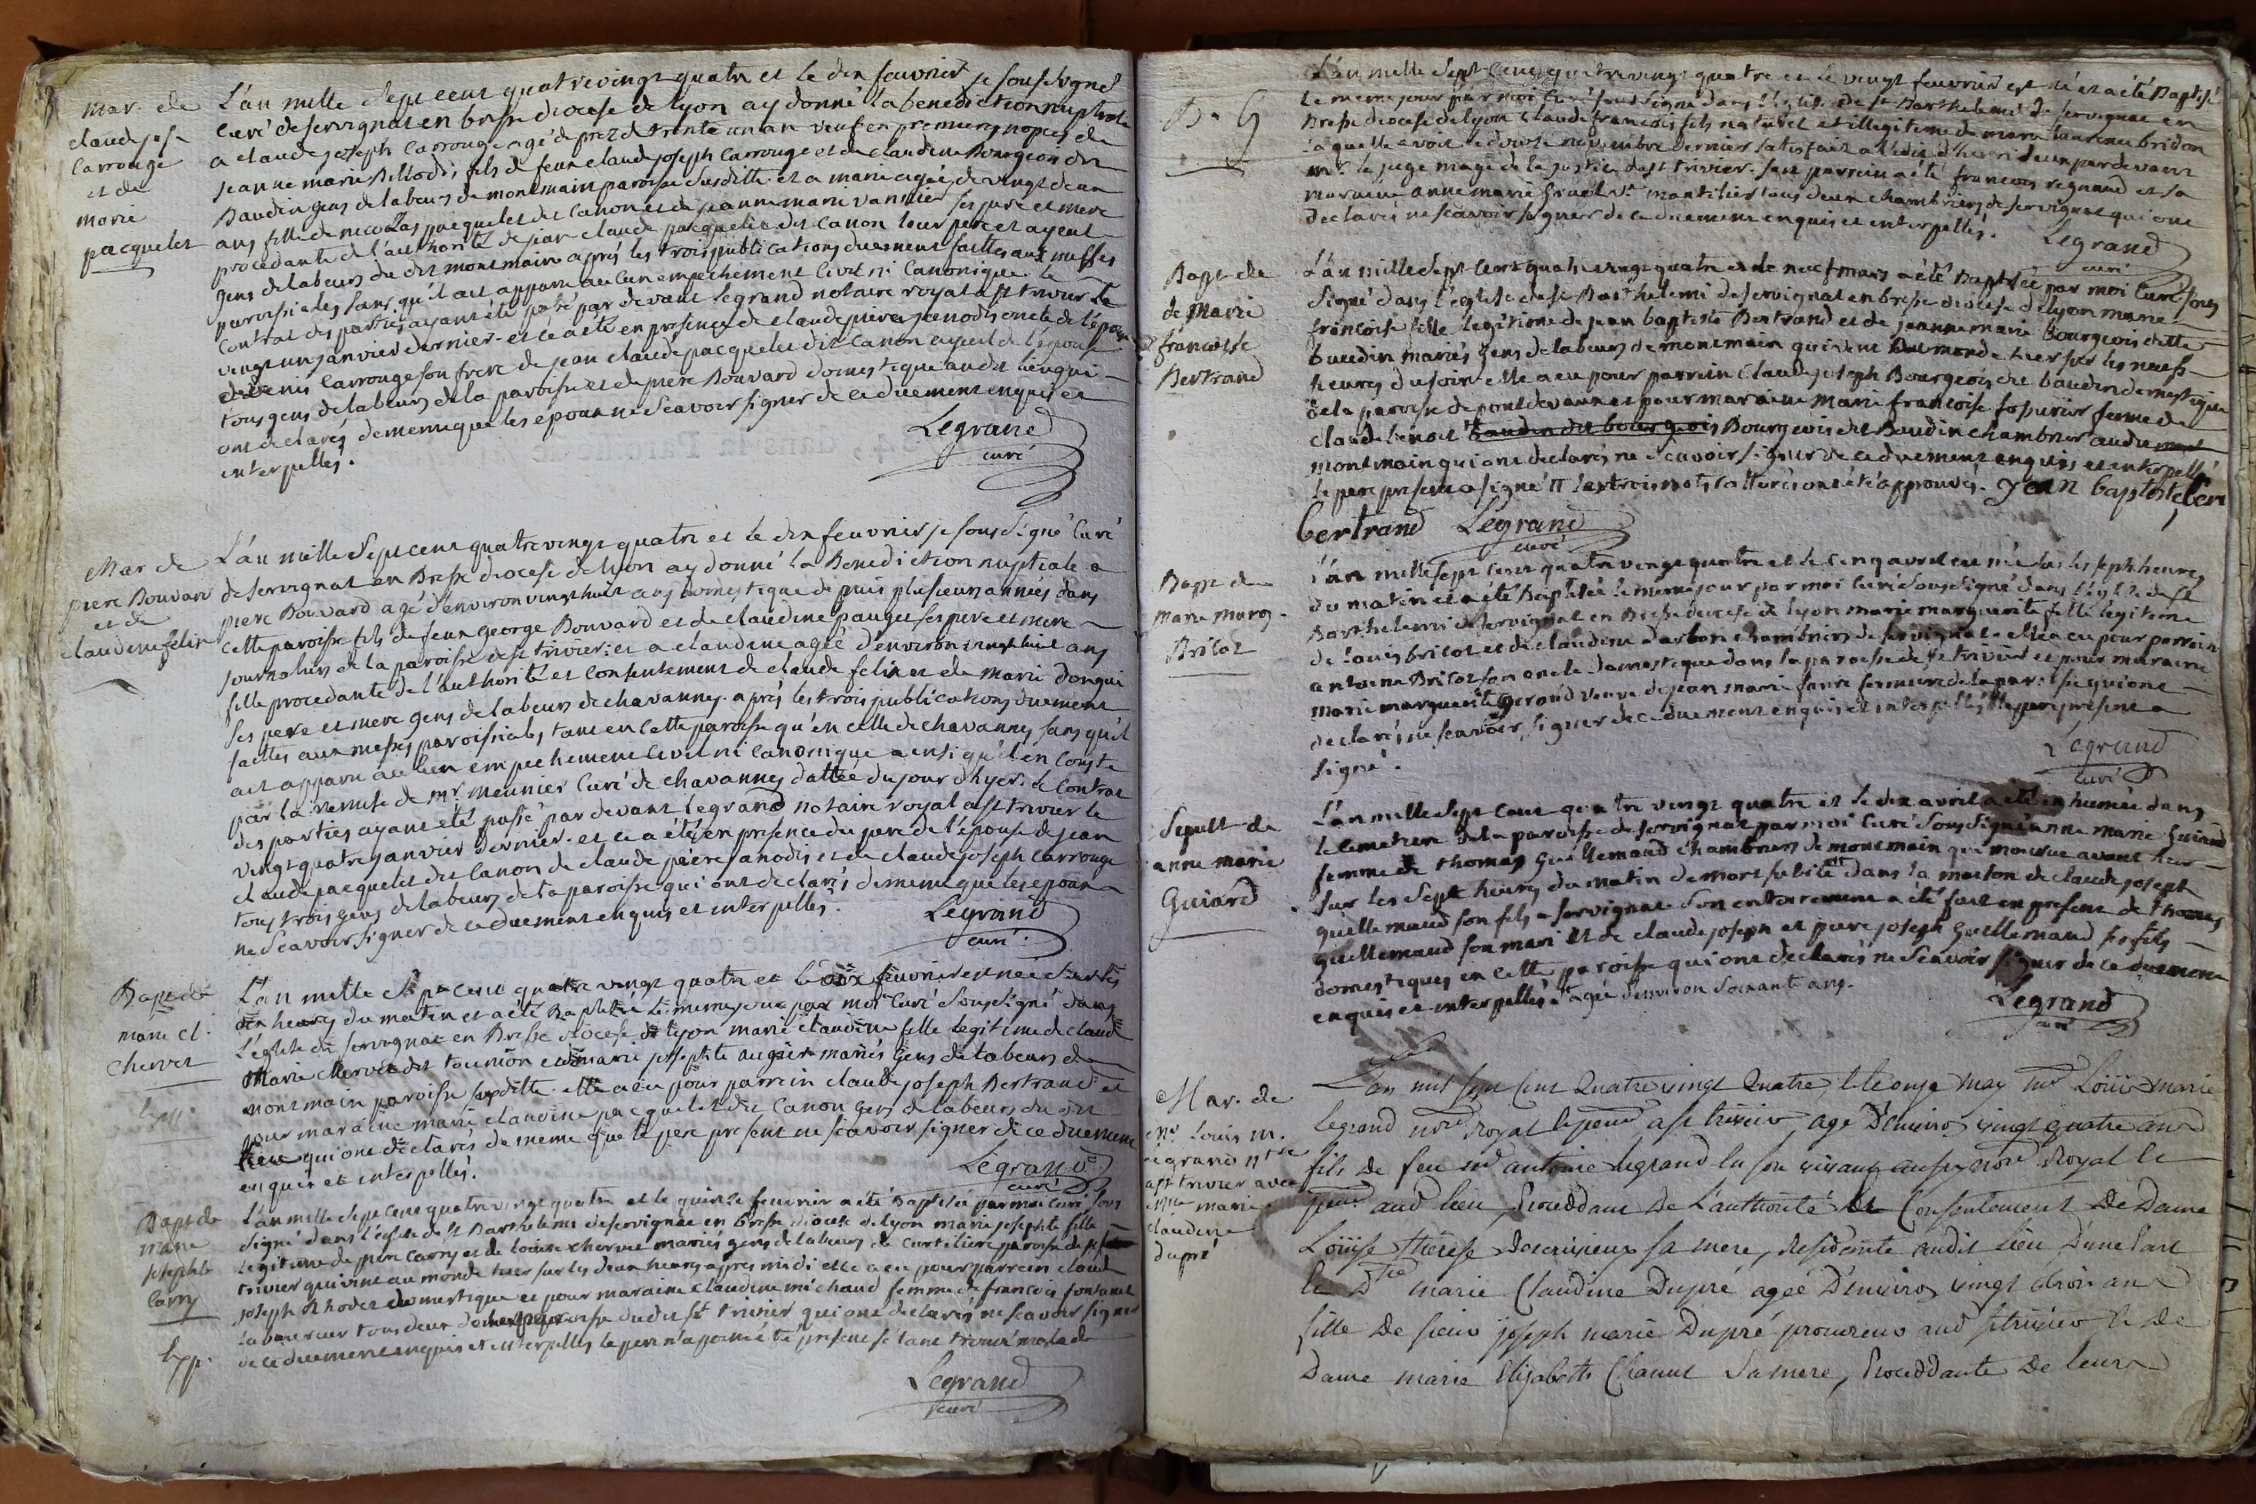 Mar. de
claude jose
Carrouge
et de
marie
pacquelet
L'an mille sept cent quatre vingt quatre et le dix feuvrier je sousigné
curé de servignat en bresse diocese de lyon ay donné la benediction nuptiale
a claude joseph Carrouge agé de prez de trente un an veuf en premieres nopces de
jeanne marie Billodis fils de feu claude joseph Carrouge et de claudine Bourgeois dit
Baudin gens de labeurs de montmain paroisse susditte. et a marie agée de vingt deux
ans fille de nicolas pacquelet dit Canon et de jeanne marie vannier ses pere et mere
procedante de l'authorité de jean claude pacquelet dit Canon leur pere et ayeul
gens de labeurs du dit montmain après les trois publications duement faittes aux messes
paroissiales sans qu'il ait apparu aucun empechement civil ni Canonique. le
Contrat des parties ayant été passé par devant Legrand notaire royal a st trivier le
vingt un janvier dernier. et ce a été en presence de claude pierre janodis oncle de l'epoux
de denis Carrouge son frere de jean claude pacquelet dit Canon ayeul de l'épouse
tous gens de labeurs de la paroisse et de piere Bouvard domestique audit lieu qui
ont declarés de meme que les epoux ne sçavoir signer de ce duement enquis et
interpellés.
Legrand
curé
Mar de
piere Bouvard
et de
claudine felix
L'an mille sept cent quatre vingt quatre et le dix feuvrier je sous signé curé
de servignat en Bresse diocese de lyon ay donné la Benediction nuptiale a
piere Bouvard agé d'environ vingt huit ans domestique depuis plusieurs années dans
cette paroisse fils de feu george Bouvard et de claudine pauget ses pere et mere
journaliers de la paroisse de st trivier: et a claudine agée d'environ vingt huit ans
fille procedante de l'authorité et consentement de claude felix et de marie donqui
ses pere et mere gens de labeurs de chavannes. après les trois publications duement
faittes aux messes paroissiales tant en cette paroisse qu'en celle de chavannes sans qu'il
ait apparu aucun empechement civil ni canonique ainsi qu'il en conste
par la remise de mr. meunier curé de chavannes dattée du jour d'hyer. le Contrat
des parties ayant été passé par devant legrand notaire royal a st trivier le
vingt quatre janvier dernier. et ce a été en presence du pere de l'épouse de jean
claude pacquelet dit Canon de claude piere janodis et de claude joseph Carrouge
tous trois gens de labeurs de la paroisse qui ont declarés de meme que les epoux
ne sçavoir signer de ce duement enquis et interpellés.
Legrand
curé.
Bapt de
marie cl.
Chervet
L'an mille sept cent quatre vingt quatre et le dix feuvrier est née sur les
dix heures du matin et a été Baptisée le meme jour par moi curé sous signé dans
L'eglise de servignat en Bresse diocese de lyon marie claudine fille legitime de claude
Marie Chervet dit tournion et de marie josephte augier mariés gens de labeurs de
montmain paroisse susditte. elle a eu pour parrein claude joseph Bertrand et
pour maraine marie claudine pacquelet dit Canon gens de labeurs du dit
lieu qui ont declarés de meme que le pere present ne sçavoir signer de ce duement
enquis et interpellés.
Legrand
curé
Bapt de
marie
josephte
Carry
Exp.
L'an mille sept cent quatre vingt quatre et le quinze feuvrier a été Baptisée par moi curé sous
signé dans l'eglise de st Barthelemi de servignat en bresse diocese de lyon marie josephte fille
legitime de piere Carry et de louise chervet mariés gens de labeurs de Curtiliere paroisse de st
trivier qui vint au monde hier sur les deux heures après midi elle a eu pour parrein claude
joseph Rhodet domestique et pour maraine claudine michaud femme de francois fontanet
laboureur tous deux paroisse dudit st trivier qui ont declarés ne sçavoir signer
de ce duement enquis et interpellés le pere n'a point été present setant trouvé malade
Legrand
curé
B. G
L'an mille sept cent quatre vingt quatre et le vingt feuvrier est né et a été Baptisé
le meme jour par moi curé sous signé dans l'eglise de st Barthelemi de servignat en
Bresse diocese de lyon Claude francois fils naturel et illegitime de marie laurence bridon
laquelle avoit le douze novembre dernier satisfait a l'edit d'henri deux par devant
mr. le juge mage de la justice de st trivier. son parrein a été francois regnaud et sa
maraine anne marie gruel mantilier tous deux chambriers de servignat qui ont
declarés ne sçavoir signer de ce duement enquis et interpellés.
Legrand
curé
Bapt de
de Marie
francoise
Bertrand
L'an mille sept cent quatre vingt quatre et le neuf mars a été Baptisée par moi curé sous
signé dans l'eglise de st Barthelemi de servignat en bresse diocese de lyon marie
francoise fille legitime de jean baptiste Bertrand et de jeanne marie Bourgeois ditte
baudin mariés gens de labeurs de montmain qui vint au monde hier sur les neuf
heures du soir elle a eu pour parrein Claude joseph Bourgeois dit baudin domestique
de la paroisse de pont de vaux et pour maraine marie francoise fossurier femme de
claude benoit baudin dit bourgeois Bourgeois dit Baudin chambrier audit
montmain qui ont declarés ne sçavoir signer de ce duement enquis et interpellés
le pere present a signé les trois mots raturés ont été approuvés. jean baptiste
bertrand Legrand
curé
Bapt de
marie marg.
Bricot
L'an mille sept cent quatre vingt quatre et le cinq avril est née sur les sept heures
du matin et a été Baptisée le meme jour par moi curé sous signé dans l'eglise de st
Barthelemi de servignat en Bresse diocese de lyon marie marguerite fille legitime
de louis bricot et de claudine darbon chambriers de servignat. elle a eu pour parrein
antoine Bricot son oncle domestique dans la paroisse de st trivier et pour maraine
marie marguerite gerand veuve de jean marie favre fermiere de la paroisse qui ont
declarés ne sçavoir signer de ce duement enquis et interpellés le pere present a
signé.
Legrand
curé
Sepult de
anne marie
Guiard
L'an mille sept cent quatre vingt quatre et le dix avril a été inhumée dans
le cimetiere de la paroisse de servignat par moi curé sous signé anne marie Guiard
femme de thomas Guillemaud chambriers de montmain qui mourut avant hier
sur les sept heures du matin de mort subite dans la maison de claude joseph
guillemaud son fils a servignat. son enterrement a été fait en present de thomas
guillemaud son mari et de claude joseph et piere joseph guillemaud ses fils
domestiques en cette paroisse qui ont declarés ne sçavoir signer de ce duement
enquis et interpellés. agée d'environ soixante ans.
Legrand
curé
Mar. de
me. louis m.
legrand nre
a st trivier avec
Dlle marie
claudine
dupré
L'an mil sept cent Quatre vingt Quatre, & le onze may me Loüis marie
legrand nore royal a st trivier, agé D'environ vingt quatre ans
fils de feu me antoine legrand lui vivant aussy nore Royal
aud lieu, Procedant De L'authorité & Consentement De Dame
Loüise therese Descrivieux sa mere, Residente audit lieu D'une part
& Dlle marie Claudine Dupré agée D'environ vingt trois ans
fille De sieur joseph marie Dupré procureur aud st trivier & de
Dame marie Elizabeth Chanut sa mere, Procedante De leurs